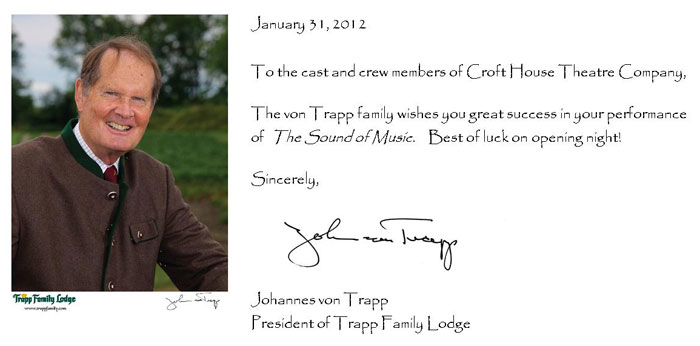 January 31, 2012
To the cast and crew members of Croft House Theatre Company,
The von Trapp family wishes you great success in your performance
of The Sound of Music. Best of luck on opening night!
Sincerely,
Johannes von Trapp
Trapp Family Lodge
www.trappfamily.com
Johannes von Trapp
President of Trapp Family Lodge